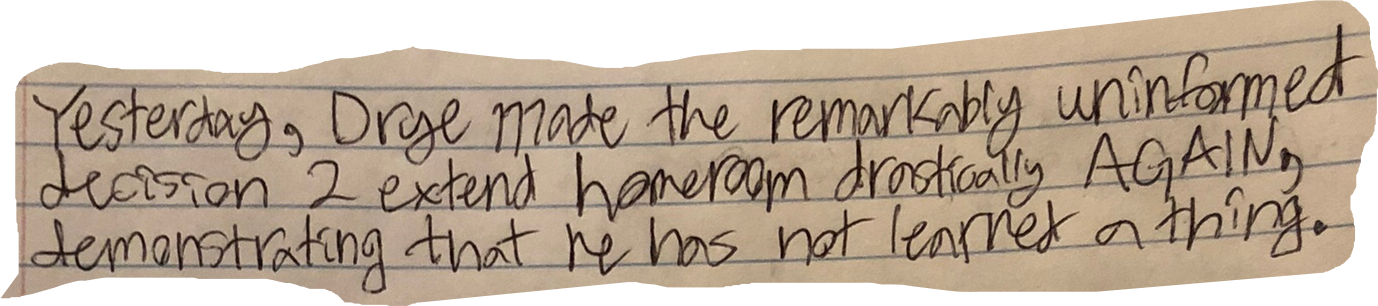 Yesterday, Drye made the remarkably uninformed
decision 2 extend homeroom drastically AGAIN,
demonstrating that he has not learned a thing.